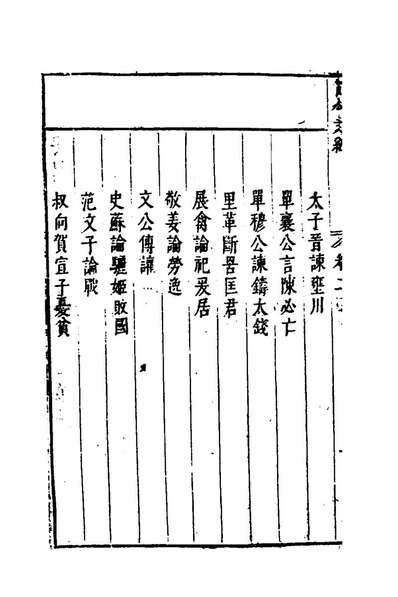 卷二
太子晉諫壅川
單襄公言陳必亡
單穆公諫鑄大錢
里革斷罟匡君
展禽論祀爰居
敬姜論勞逸
文公傳讓
史蘇論驪姬敗國
范文子論戰
叔向賀宣子憂貧